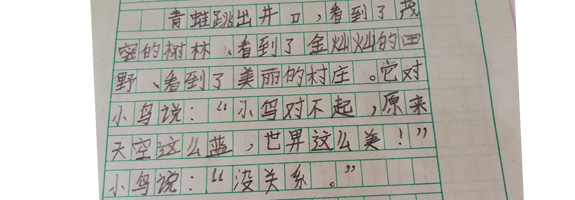 青蛙跳出井口，看到了茂
密的树林、看到了金灿灿的田
野、看到了美丽的村庄。它对
小鸟说：“小鸟对不起，原来
天空这么蓝，世界这么美！”
小鸟说：“没关系。”